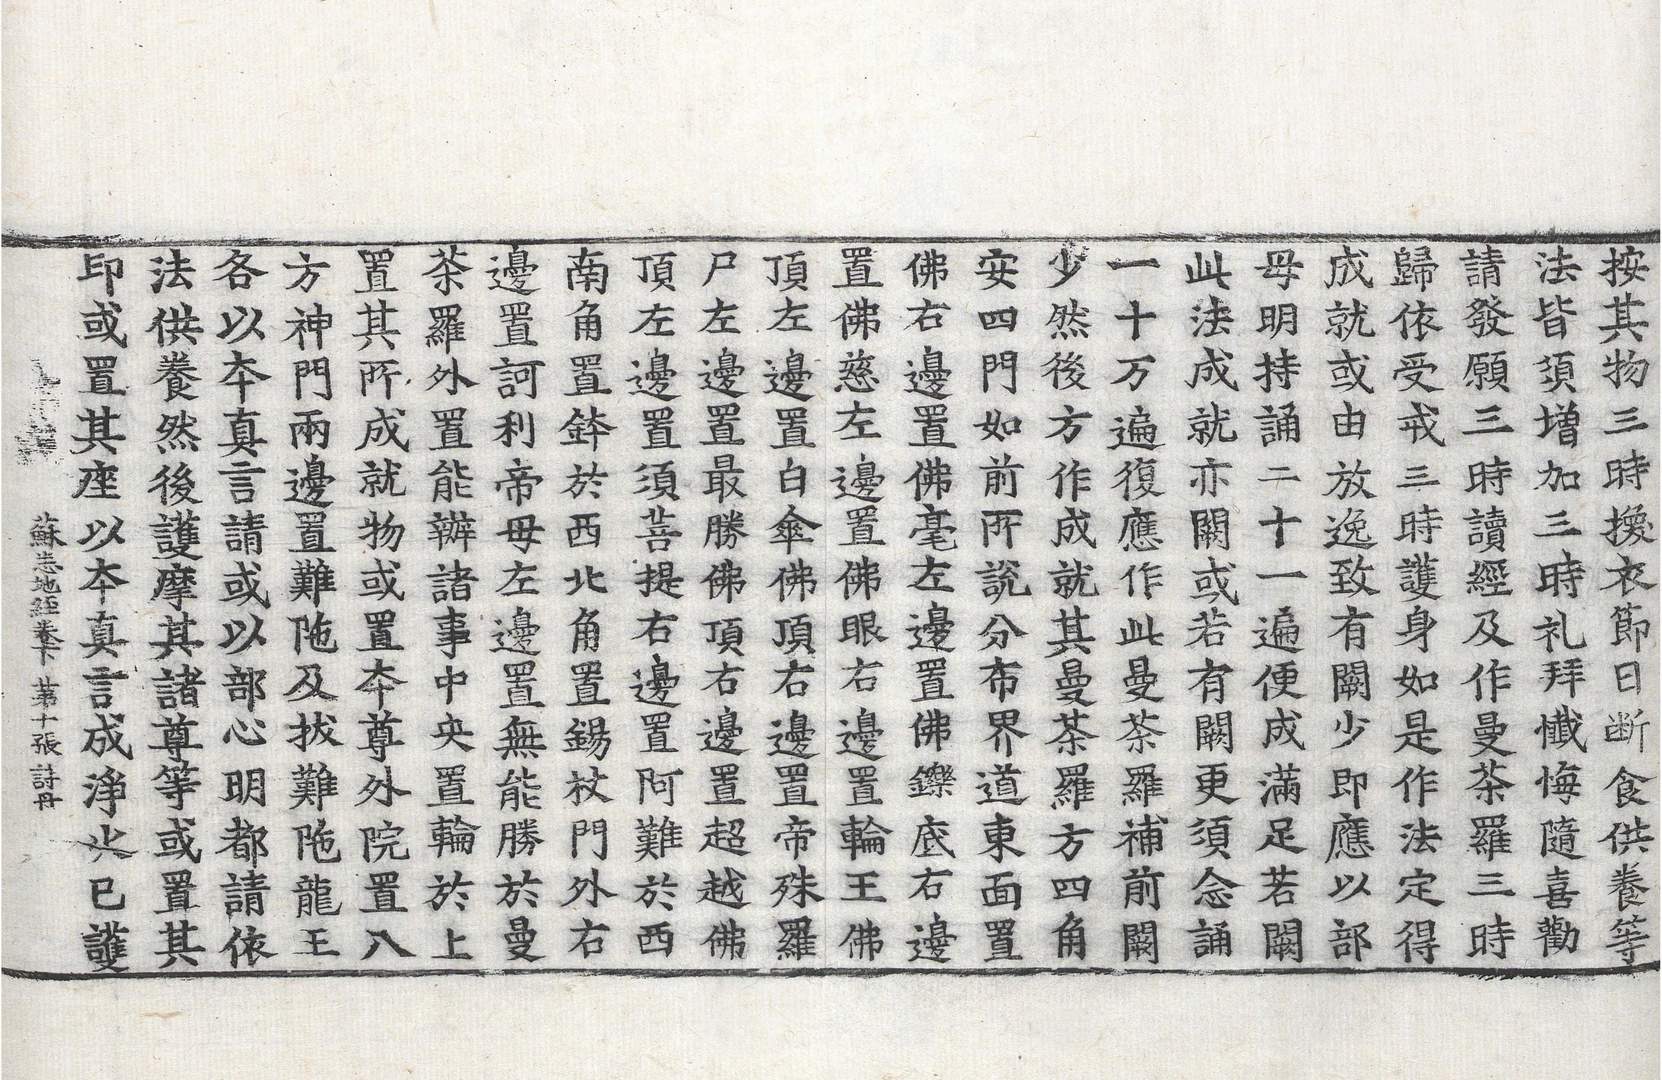 按其物三時換衣節日断食供養等
法皆須增加三時礼拜懺悔隨喜勸
請發願三時讀經及作曼茶羅三時
歸依受戒三時護身如是作法定得
成就或由放逸致有闕少即應以部
母明持誦二十一遍便成滿足若闕
此法成就亦闕或若有闕更須念誦
一十万遍復應作此曼荼羅補前闕
少然後方作成就其曼荼羅方四角
安四門如前所說分布界道東面置
佛右邊置佛毫左邊置佛鑠底右邊
置佛慈左邊置佛眼右邊置輪王佛
頂左邊置白傘佛頂右邊置帝殊羅
尸左邊置最勝佛頂右邊置超越佛
頂左邊置須菩提右邊置阿難於西
南角置鉢於西北角置錫杖門外右
邊置訶利帝母左邊置無能勝於曼
茶羅外置能辦諸事中央置輪於上
置其所成就物或置本尊外院置八
方神門兩邊置難陁及拔難陁龍王
各以本真言請或以部心明都請依
法供養然後護摩其諸尊等或置其
印或置其座以本真言成淨火已護
蘇悉地經卷下 第十張 詩丹